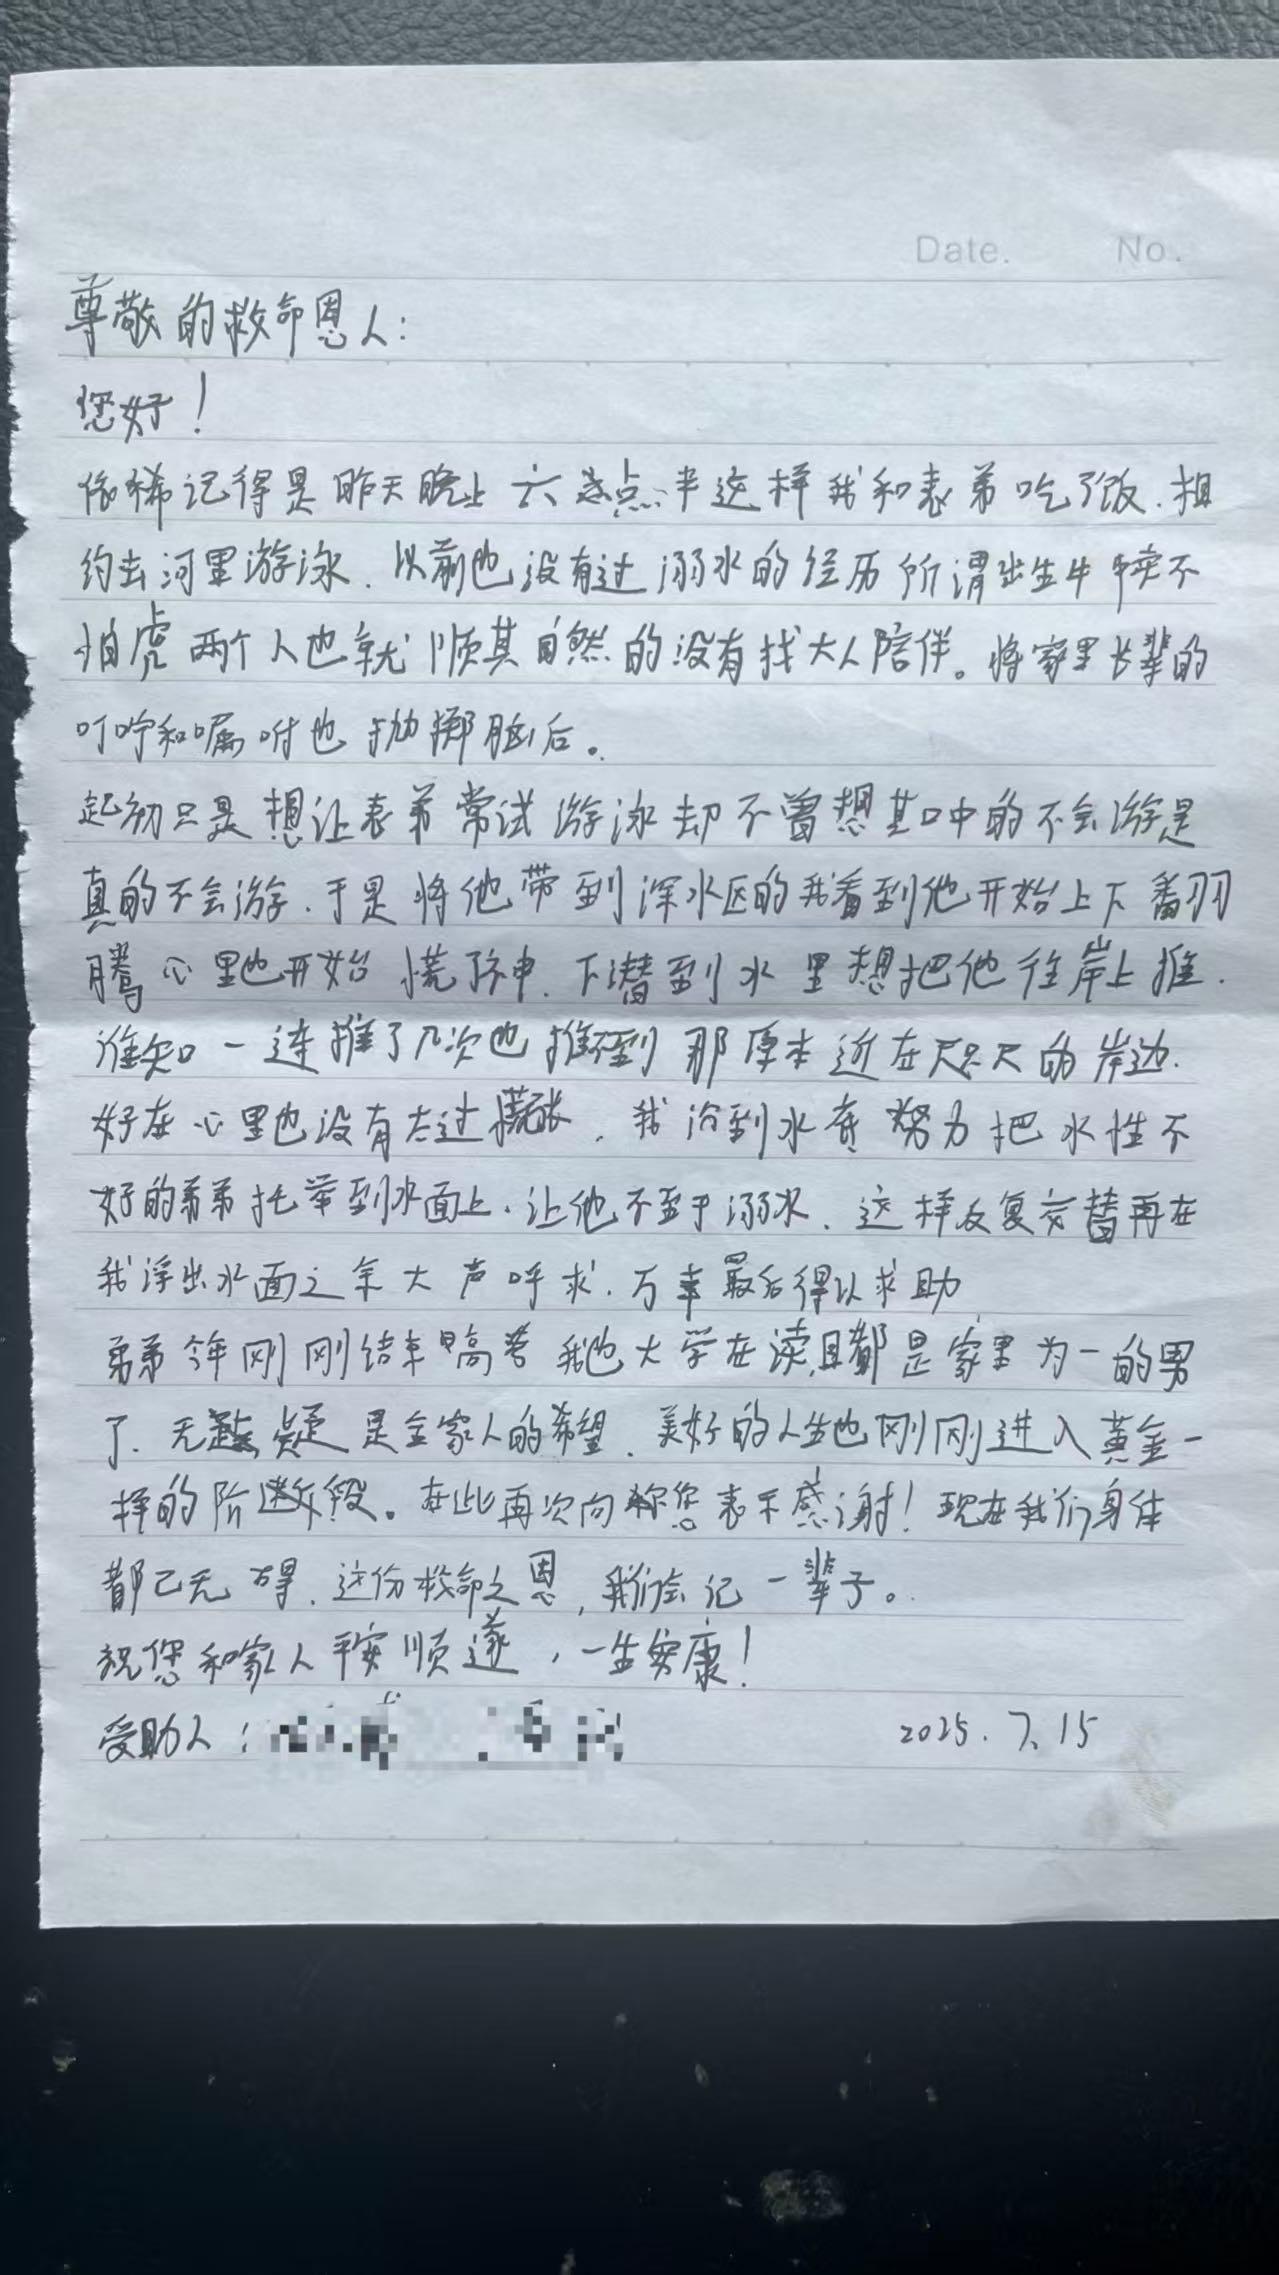 Date. No.
尊敬的救命恩人:
您好!
依稀记得是昨天晚上六点半这样我和表弟吃了饭.相
约去河里游泳.以前也没有过溺水的经历所谓出生牛犊不
怕虎两个人也就顺其自然的没有找大人陪伴。将家里长辈的
叮咛和嘱咐也抛掷脑后。
起初只是想让表弟常试游泳却不曾想其口中的不会游是
真的不会游.于是将他带到深水区的我看到他开始上下翻
腾心里也开始慌了神.下潜到水里想把他往岸上推.
谁知一连推了几次也推不到那原本近在咫尺的岸边.
好在心里也没有太过慌张.我沉到水底努力把水性不
好的弟弟托举到水面上.让他不至于溺水.这样反复交替再在
我浮出水面之余大声呼求.万幸最后得以求助
弟弟今年刚刚结束高考我也大学在读,且都是家里为一的男
丁.无疑是全家人的希望.美好的人生也刚刚进入黄金一
样的阶段。在此再次向您表示感谢!现在我们身体
都已无碍.这份救命之恩,我们会记一辈子。
祝您和家人平安顺遂,一生安康!
受助人:
2025.7.15